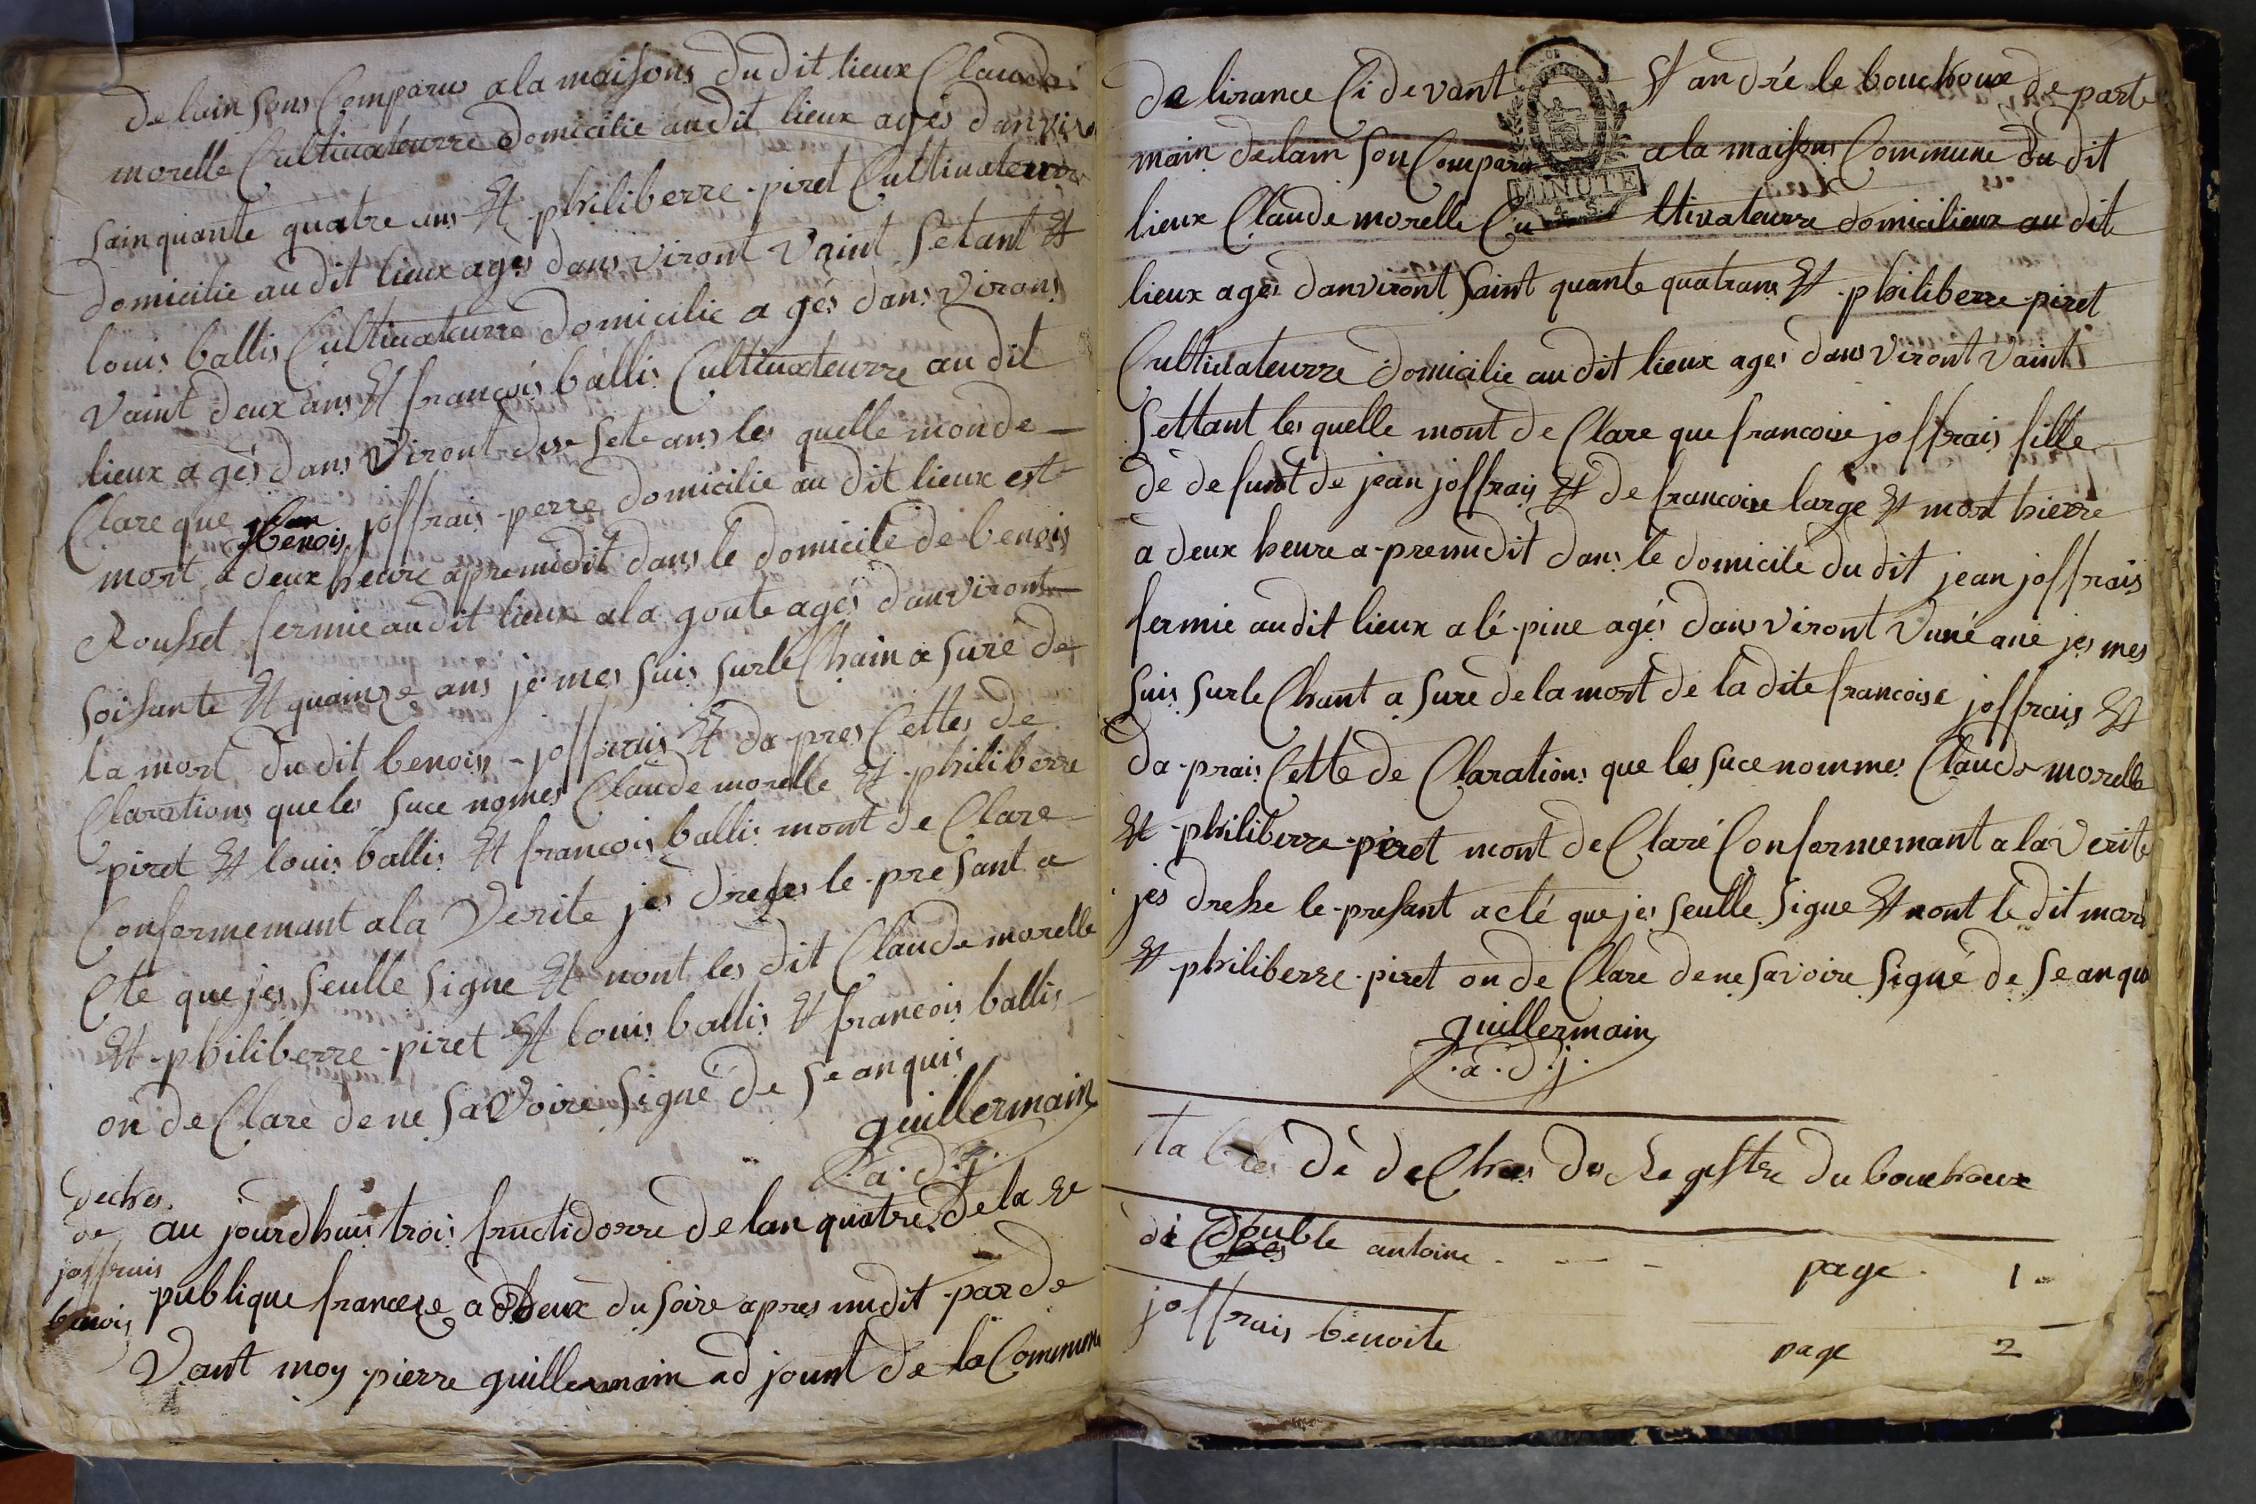 de lain sons Comparu a la maisons du dit lieux Claude
morelle Cultivateurre domicilie au dit lieux agés danviron
sainquante quatre ans Et philiberre piret Cultivateurre
domicilie au dit lieux agés dans viront vaint setant Et
louis ballis Cultivateurre domicilie a gés dans virons
vaint deux ans Et françois ballis Cultivateurre au dit
lieux a gés dans viront dise sete ans les quelle monde
Clare que benois joffrais perre domicilie au dit lieux est
mort a deux heure apremidit dans le domicile de benois
Rousset fermie au dit lieux a la goute agés danviront
soisante Et quainze ans je mes suis surle Chain a suré de
la mort du dit benois joffrais Et da pres Cettes de
Clarations que les suce nomes Claude morelle Et philiberre
piret Et louis ballis Et françois ballis mont de Clare
Conformemant a la verite jes dreses le presant a
Cte que jes seulle signe Et nont les dit Claude morelle
Et philiberre piret Et louis ballis Et francois ballis
on de Clare de ne savoire signé de se anquis
guillermain
a. d. j.
deches
de
joffrais
benois
au jourdhuis trois fructidorre de lan quatre de la re
publique franceze a deux du soire apres midit par de
vant moy pierre guillermain ad joint de la Commune
de lirance Ci devant St andré le bouchoux de parte
main de lain son Comparu a la maisons Commune du dit
lieux Claude morelle Cu ltivateurre domicilieux au dit
lieux agés danviront saint quante quatrans Et philiberre piret
Cultivateurre domicilie au dit lieux agés dans viront vaint
settant les quelle mont de Clare que francoise joffrais fille
de defunt de jean joffrais Et de francoise large Et mort hierre
a deux heure a premidit dans le domicile du dit jean joffrais
fermie au dit lieux a lé pine agés dans viront vuné ané jes mes
suis surle Chant a suré de la mort de la dite francoise joffrais Et
da prais Cette de Clarations que les suce nommes Claude morelle
Et philiberre piret mont de Claré Conformemant a la verite
jes dresse le presant acte que jes seulle signe Et nont le dit morè
Et philiberre piret on de Clare de ne savoire signé de se anquis
guillermain
a. d. j.
MINUTE
4 S.
tables dè deChes du Registre du bouchoux
double antoine page 1
joffrais benoite page 2